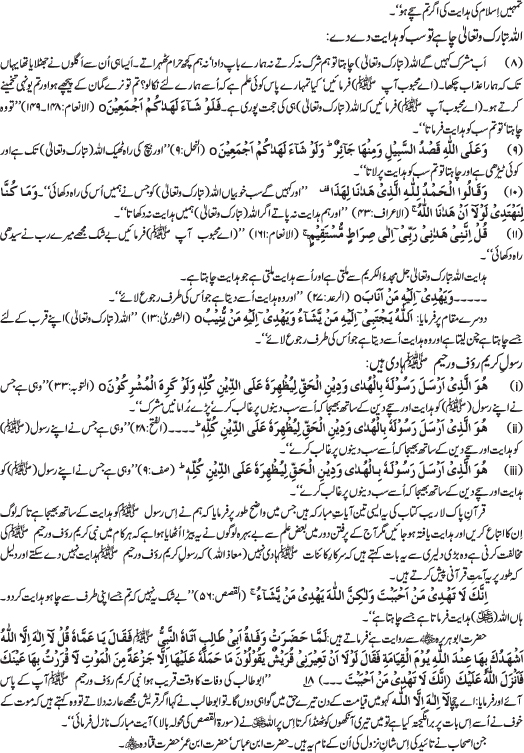 تمہیں اسلام کی ہدایت کی اگر تم سچے ہو‘‘۔
اللہ تبارک وتعالیٰ چاہے تو سب کو ہدایت دے دے:
(۸) اَب مشرک کہیں گے اللہ (تبارک وتعالیٰ) چاہتا تو ہم شرک نہ کرتے نہ ہمارے باپ دادا‘ نہ ہم کچھ حرام ٹھہراتے۔ ایسا ہی اُن سے اگلوں نے جھٹلایا تھا یہاں
تک کہ ہمارا عذاب چکھا۔ (اے محبوب آپ ﷺ) فرمائیں‘ کیا تمہارے پاس کوئی علم ہے کہ اُسے ہمارے لئے نکالو؟ تم تو نرے گمان کے پیچھے ہو اور تم یونہی تخمینے
کرتے ہو۔ (اے محبوب آپ ﷺ) فرمائیں کہ اللہ (تبارک وتعالیٰ) ہی کی حجت پوری ہے۔ فَلَوْ شَآءَ لَهَدٰىكُمْ اَجْمَعِيْنَo (الانعام:۱۴۸۔۱۴۹) ’’تو وہ
چاہتا‘ تو تم سب کو ہدایت فرماتا‘‘۔
(۹) وَعَلَى اللّٰهِ قَصْدُ السَّبِيْلِ وَمِنْهَا جَآئِرٌ ؕ وَلَوْ شَآءَ لَهَدٰىكُمْ اَجْمَعِيْنَo (النحل:۹) ’’اور بیچ کی راہ ٹھیک اللہ (تبارک وتعالیٰ) تک ہے اور
کوئی ٹیڑھی ہے اور چاہتا تو تم سب کو راہ پر لاتا‘‘۔
(۱۰) وَقَالُوا الْحَمْدُ لِلّٰهِ الَّذِيْ هَدٰنَا لِهٰذَا ’’اور کہیں گے سب خوبیاں اللہ (تبارک وتعالیٰ) کو جس نے ہمیں اُس کی راہ دکھائی‘‘۔ وَمَا كُنَّا
لِنَهْتَدِيَ لَوْلَآ اَنْ هَدٰنَا اللّٰهُ ۚ (الاعراف:۴۳) ’’اور ہم ہدایت نہ پاتے اگر اللہ (تبارک وتعالیٰ) ہمیں ہدایت نہ دکھاتا‘‘۔
(۱۱) قُلْ اِنَّنِيْ هَدٰىنِيْ رَبِّيْٓ اِلٰى صِرَاطٍ مُّسْتَقِيْمٍ ۚ (الانعام:۱۶۱) ’’(اے محبوب آپ ﷺ) فرمائیں بے شک مجھے میرے رب نے سیدھی
راہ دکھائی‘‘۔
ہدایت اللہ تبارک وتعالیٰ جل مجدہُ الکریم سے ملتی ہے اور اُسے ہدایت ملتی ہے جو ہدایت چاہتا ہے۔
۔۔۔۔۔ وَيَهْدِيْٓ اِلَيْهِ مَنْ اَنَابَo (الرعد:۲۷) ’’اور وہ ہدایت اُسے دیتا ہے جو اُس کی طرف رجوع لائے‘‘۔
دوسرے مقام پر فرمایا: اَللّٰهُ يَجْتَبِيْٓ اِلَيْهِ مَنْ يَّشَآءُ وَيَهْدِيْٓ اِلَيْهِ مَنْ يُّنِيْبُo (الشوریٰ:۱۳) ’’اللہ (تبارک وتعالیٰ) اپنے قرب کے لئے
جسے چاہتا ہے چن لیتا ہے اور وہ ہدایت اُسے دیتا ہے جو اُس کی طرف رجوع لائے‘‘۔
رسولِ کریم رؤف و رحیم ﷺ ہادی ہیں:
(i) هُوَ الَّذِيْٓ اَرْسَلَ رَسُوْلَهٗ بِالْهُدٰى وَدِيْنِ الْحَقِّ لِيُظْهِرَهٗ عَلَى الدِّيْنِ كُلِّهٖ وَلَوْ كَرِهَ الْمُشْرِكُوْنَo (التوبہ:۳۳) ’’وہی ہے جس
نے اپنے رسول (ﷺ) کو ہدایت اور سچے دین کے ساتھ بھیجا کہ اُسے سب دینوں پر غالب کرے پڑے بُرا مانیں مشرک‘‘۔
(ii) هُوَ الَّذِيْٓ اَرْسَلَ رَسُوْلَهٗ بِالْهُدٰى وَدِيْنِ الْحَقِّ لِيُظْهِرَهٗ عَلَى الدِّيْنِ كُلِّهٖ ؕ ۔۔۔۔ (الفتح:۲۸) ’’وہی ہے جس نے اپنے رسول (ﷺ)
کو ہدایت اور سچے دین کے ساتھ بھیجا کہ اُسے سب دینوں پر غالب کرے‘‘۔
(iii) هُوَ الَّذِيْٓ اَرْسَلَ رَسُوْلَهٗ بِالْهُدٰى وَدِيْنِ الْحَقِّ لِيُظْهِرَهٗ عَلَى الدِّيْنِ كُلِّهٖ ؕ (صف:۹) ’’وہی ہے جس نے اپنے رسول (ﷺ) کو
ہدایت اور سچے دین کے ساتھ بھیجا کہ اُسے سب دینوں پر غالب کرے‘‘۔
قرآنِ پاک لاریب کتاب کی یہ ایسی تین آیاتِ مبارکہ ہیں جن میں واضح طور پر فرمایا کہ ہم نے اِس رسول ﷺ کو ہدایت کے ساتھ بھیجا ہے تا کہ لوگ
اُن کا اتباع کریں اور ہدایت یافتہ ہو جائیں مگر آج کے پُر فتن دور میں بعض علم سے بے بہرہ لوگوں نے یہ بیڑا اُٹھایا ہوا ہے کہ ہر کام میں نبی کریم رؤف و رحیم ﷺ کی
مخالفت کرنی ہے وہ بڑی دلیری سے یہ بات کہتے ہیں کہ سرکارِ کائنات ﷺ ہادی نہیں (معاذ اللہ) کہ رسولِ کریم رؤف و رحیم ﷺ ہدایت نہیں دے سکتے اور دلیل
کے طور پر یہ آیتِ قرآنی پیش کرتے ہیں۔
اِنَّكَ لَا تَهْدِيْ مَنْ اَحْبَبْتَ وَلٰكِنَّ اللّٰهَ يَهْدِيْ مَنْ يَّشَآءُ ۚ (القصص:۵۶) ’’بے شک یہ نہیں کہ تم جسے اپنی طرف سے چاہو ہدایت کردو۔
ہاں اللہ ہدایت فرماتا ہے جسے چاہتا ہے‘‘۔
حضرت ابوہریرہ سے روایت ہے فرماتے ہیں: لَمَّا حَضَرَتْ وَفَاةُ اَبِيْ طَالِبٍ اَتَاهُ النَّبِيُّ ﷺ فَقَالَ يَا عَمَّاهُ قُلْ لَا اِلٰهَ اِلَّا اللّٰهُ
اَشْهَدُكَ بِهَا عِنْدَ اللّٰهِ يَوْمَ الْقِيَامَةِ فَقَالَ لَوْلَا اَنْ تُعَيِّرَنِيْ قُرَيْشٌ يَقُوْلُوْنَ مَا حَمَلَهٗ عَلَيْهَا اِلَّا جَزْعُهٗ مِنَ الْمَوْتِ لَا قْرَرْتُ بِهَا عَيْنَكَ
فَاَنْزَلَ اللّٰهُ عَلَيْكَ (اِنَّكَ لَا تَهْدِيْ مَنْ اَحْبَبْتَ ۔۔۔) ۱۸ ’’ابوطالب کی وفات کا وقت قریب ہوا نبی کریم رؤف و رحیم ﷺ آپ کے پاس
آئے اور فرمایا: اے چچا لَآ اِلٰهَ اِلَّا اللّٰهُ کہو میں قیامت کے دن تیرے حق میں گواہی دوں گا۔ تو ابوطالب نے کہا اگر قریش مجھے عار نہ دلاتے تو وہ کہتے ہیں کہ موت کے
خوف نے اُسے اِس بات پر برانگیختہ کیا ہے تو میں تیری آنکھوں کو ٹھنڈا کرتا اِس پر اللہ نے (سورۃ القصص کی محولہ بالا) آیت مبارکہ نازل فرمائی‘‘۔
جن اصحاب نے تائید کی اِس شانِ نزول کی اُن کے نام یہ ہیں۔ حضرت ابن عباس‘ حضرت ابن عمر‘ حضرت قتادہ۔